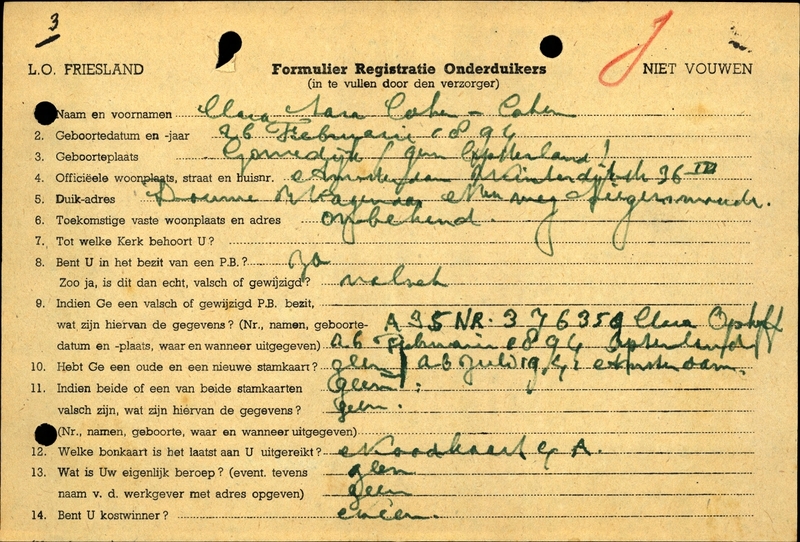 3
J
L.O. FRIESLAND Formulier Registratie Onderduikers NIET VOUWEN
(in te vullen door den verzorger)
Naam en voornamen Clara Sara Cohen - Cohen
2. Geboortedatum en -jaar 26 Februarie 1894
3. Geboorteplaats Gorredijk (gem Opsterland)
4. Officiëele woonplaats, straat en huisnr. Amsterdam 36 III
5. Duik-adres Douwe Wagenaar
6. Toekomstige vaste woonplaats en adres onbekend.
7. Tot welke Kerk behoort U?
8. Bent U in het bezit van een P.B.? ja
Zoo ja, is dit dan echt, valsch of gewijzigd? valsch
9. Indien Ge een valsch of gewijzigd P.B. bezit,
wat zijn hiervan de gegevens? (Nr., namen, geboorte- A 35 NR. 376359 Clara Ophoff
datum en -plaats, waar en wanneer uitgegeven) 26 Februarie 1894 Opsterland
10. Hebt Ge een oude en een nieuwe stamkaart? geen) 23 Juli 1941 Amsterdam.
11. Indien beide of een van beide stamkaarten geen :
valsch zijn, wat zijn hiervan de gegevens? geen.
(Nr., namen, geboorte, waar en wanneer uitgegeven)
12. Welke bonkaart is het laatst aan U uitgereikt? Noodkaart A.
13. Wat is Uw eigenlijk beroep? (event. tevens geen
naam v. d. werkgever met adres opgeven) geen
14. Bent U kostwinner? neen.